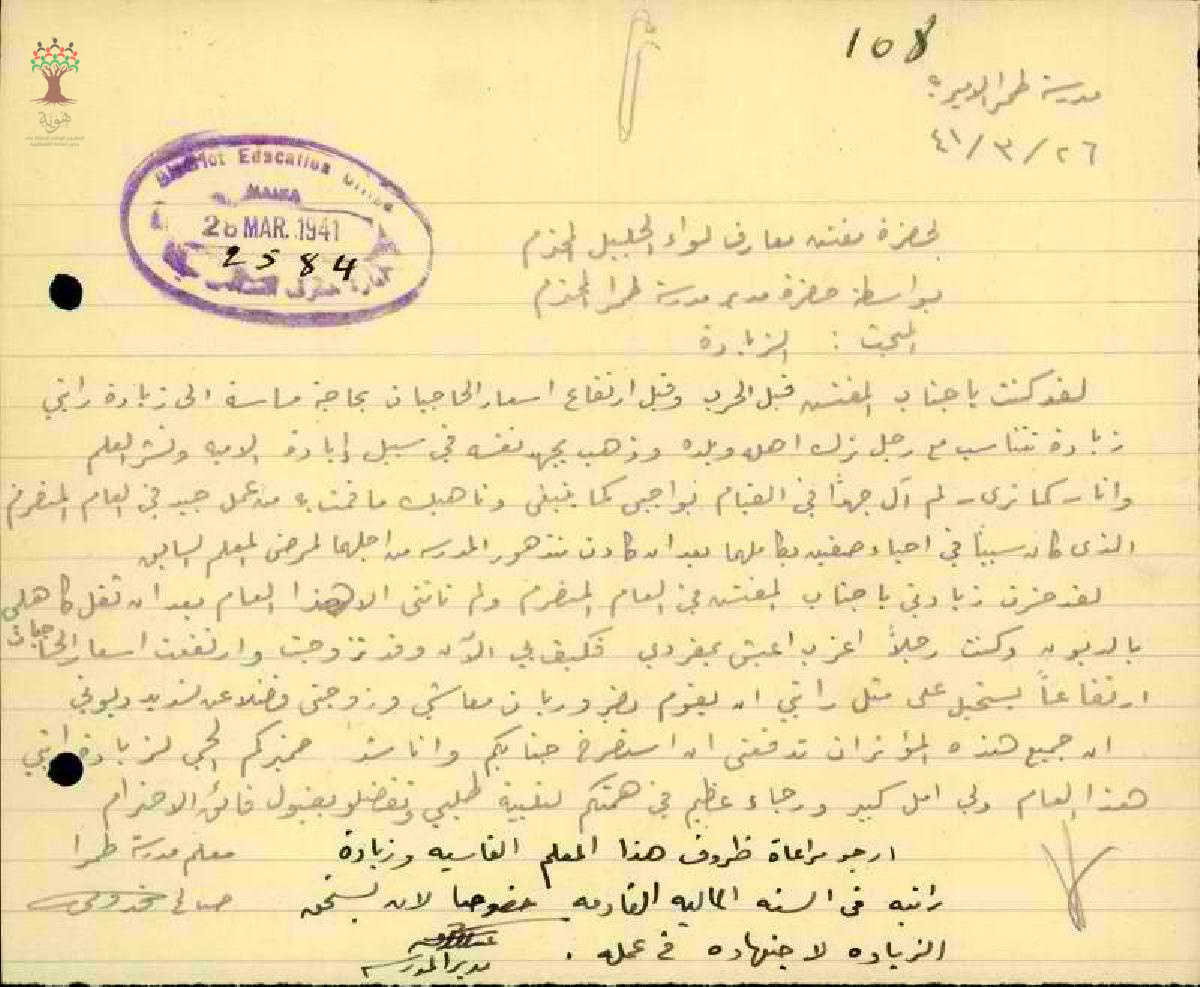 108
مدرسة طمرا الاميرية
٢٦/٣/٤١
هوية
District Education Office
HAIFA
28 MAR. 1941
2584
لحضرة مفتش معارف لواء الجليل المحترم
بواسطة حضرة مدير مدرسة طمرا المحترم
المبحث : الزيادة
لقد كنت يا جناب المفتش قبل الحرب وقبل ارتفاع اسعار الحاجيات بحاجة ماسة الى زيادة راتبي
زيادة تتناسب مع رجل ترك اهله وبلده وذهب يجهد نفسه في سبيل إبادة الامية ونشر العلم
وانا - كما ترى - لم آل جهدًا في القيام بواجبي كما ينبغي وناهيك ما قمت به من عمل جيد في العام المنصرم
الذي كان سببًا في احياء صفين بكاملهما بعد ان كادت تتدهور المدرسة من اجلهما لمرض المعلم السابق
لقد خسرت زيادتي يا جناب المفتش في العام المنصرم ولم تأتني الا هذا العام بعد ان ثقل كاهلي
بالديون وكنت رجلاً اعزب اعيش بمفردي فكيف بي الآن وقد تزوجت وارتفعت اسعار الحاجيات
ارتفاعاً يستحيل على مثل راتبي ان يقوم بضروريات معاشي وزوجتي فضلا عن تسديد ديوني
ان جميع هذه المؤثرات تدفعني ان استصرخ جنابكم واناشد ضميركم الحي لزيادة راتبي
هذا العام ولي امل كبير ورجاء عظيم في همتكم لتلبية طلبي وتفضلوا بقبول فائق الاحترام
معلم مدرسة طمرا
صالح
ارجو مراعاة ظروف هذا المعلم القاسيه وزيادة
راتبه في السنه الماليه القادمه خصوصا لانه يستحق
الزياده لاجتهاده في عمله .
مدير المدرسه